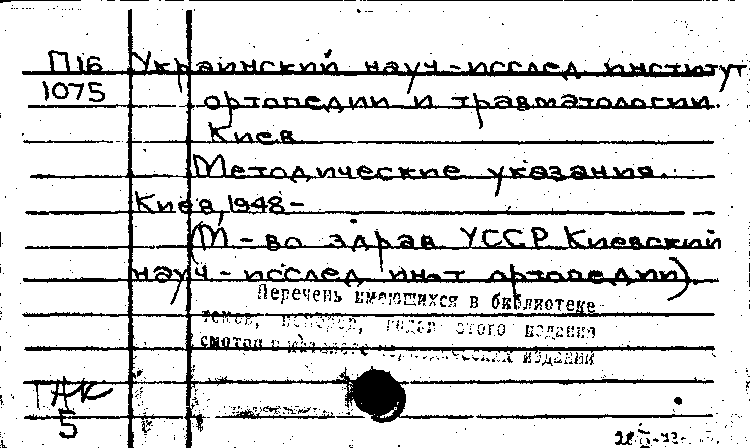 П16 Украинский науч-исслед институт
1075 ортопедии и травматологии.
Киев
Методические указания.
Киев, 1948-
(М-во здрав УССР Киевский
науч-исслед ин-т ортопедии)
Перечень имеющихся в библиотеке
томов, номеров, годов этого издания
смотри в каталоге периодических изданий
ГАК
5